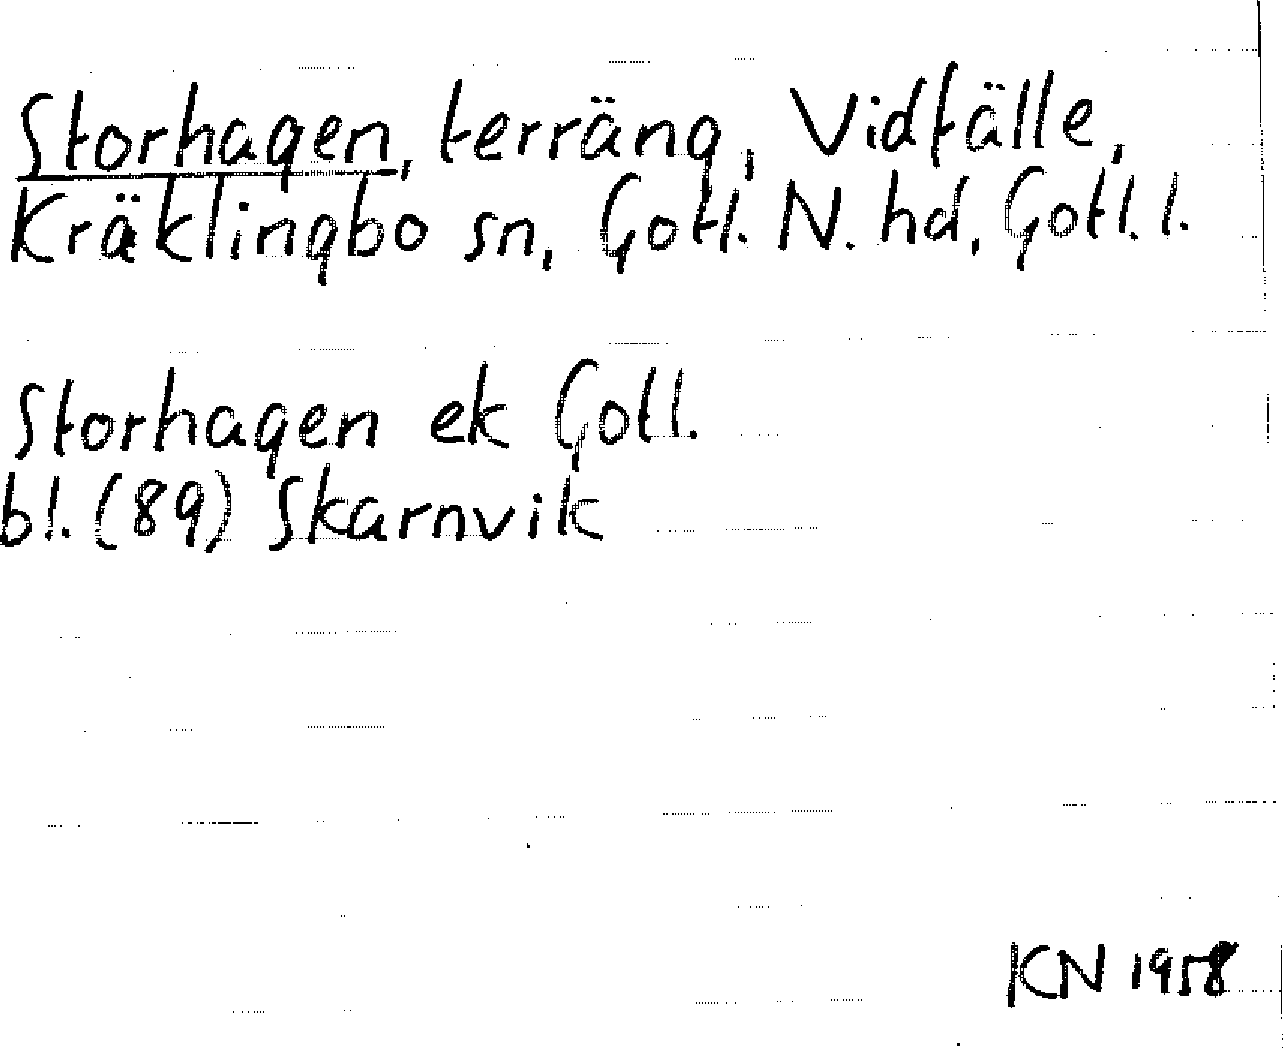 Storhagen, terräng, Vidfälle,
Kräklingbo sn, Gotl. N. hd, Gotl. l.
Storhagen ek Gotl.
bl. (89) Skarnvik
KN 1958